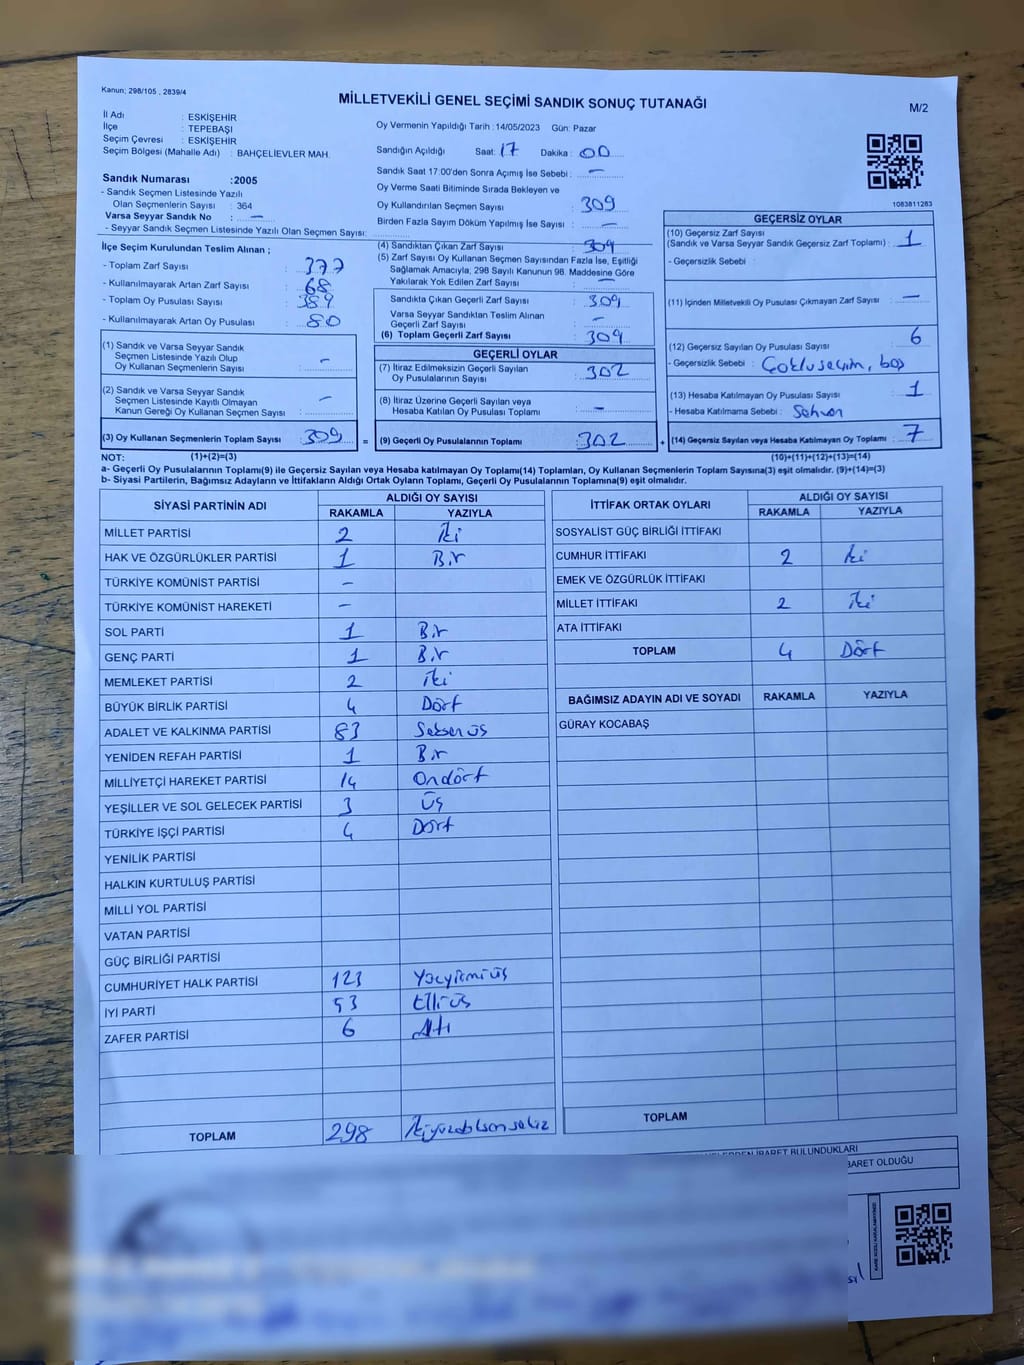 Kanun; 298/105 , 2839/4
MİLLETVEKİLİ GENEL SEÇİMİ SANDIK SONUÇ TUTANAĞI
M/2
İl Adı : ESKİŞEHİR
İlçe : TEPEBAŞI
Seçim Çevresi : ESKİŞEHİR
Seçim Bölgesi (Mahalle Adı) : BAHÇELİEVLER MAH.
Sandık Numarası :2005
- Sandık Seçmen Listesinde Yazılı
Olan Seçmenlerin Sayısı : 364
Varsa Seyyar Sandık No : —
- Seyyar Sandık Seçmen Listesinde Yazılı Olan Seçmen Sayısı:
Oy Vermenin Yapıldığı Tarih : 14/05/2023 Gün: Pazar
Sandığın Açıldığı Saat: 17 Dakika : 00
Sandık Saat 17:00'den Sonra Açımış İse Sebebi : —
Oy Verme Saati Bitiminde Sırada Bekleyen ve
Oy Kullandırılan Seçmen Sayısı : 309
Birden Fazla Sayım Döküm Yapılmış İse Sayısı : —
1083811283
İlçe Seçim Kurulundan Teslim Alınan ;
- Toplam Zarf Sayısı : 377
- Kullanılmayarak Artan Zarf Sayısı : 68
- Toplam Oy Pusulası Sayısı : 389
- Kullanılmayarak Artan Oy Pusulası : 80
(1) Sandık ve Varsa Seyyar Sandık
Seçmen Listesinde Yazılı Olup
Oy Kullanan Seçmenlerin Sayısı : —
(2) Sandık ve Varsa Seyyar Sandık
Seçmen Listesinde Kayıtlı Olmayan
Kanun Gereği Oy Kullanan Seçmen Sayısı : —
(3) Oy Kullanan Seçmenlerin Toplam Sayısı : 309 =
(4) Sandıktan Çıkan Zarf Sayısı : 309
(5) Zarf Sayısı Oy Kullanan Seçmen Sayısından Fazla İse, Eşitliği
Sağlamak Amacıyla; 298 Sayılı Kanunun 98. Maddesine Göre
Yakılarak Yok Edilen Zarf Sayısı : —
Sandıkta Çıkan Geçerli Zarf Sayısı : 309
Varsa Seyyar Sandıktan Teslim Alınan
Geçerli Zarf Sayısı : —
(6) Toplam Geçerli Zarf Sayısı : 309
GEÇERLİ OYLAR
(7) İtiraz Edilmeksizin Geçerli Sayılan
Oy Pusulalarının Sayısı : 302
(8) İtiraz Üzerine Geçerli Sayılan veya
Hesaba Katılan Oy Pusulası Toplamı : —
(9) Geçerli Oy Pusulalarının Toplamı : 302 +
GEÇERSİZ OYLAR
(10) Geçersiz Zarf Sayısı
(Sandık ve Varsa Seyyar Sandık Geçersiz Zarf Toplamı) : 1
- Geçersizlik Sebebi :
(11) İçinden Milletvekili Oy Pusulası Çıkmayan Zarf Sayısı : —
(12) Geçersiz Sayılan Oy Pusulası Sayısı : 6
- Geçersizlik Sebebi : Çoklu seçim, boş
(13) Hesaba Katılmayan Oy Pusulası Sayısı : 1
- Hesaba Katılmama Sebebi : Sehven
(14) Geçersiz Sayılan veya Hesaba Katılmayan Oy Toplamı : 7
NOT: (1)+(2)=(3) (10)+(11)+(12)+(13)=(14)
a- Geçerli Oy Pusulalarının Toplamı(9) ile Geçersiz Sayılan veya Hesaba katılmayan Oy Toplamı(14) Toplamları, Oy Kullanan Seçmenlerin Toplam Sayısına(3) eşit olmalıdır. (9)+(14)=(3)
b- Siyasi Partilerin, Bağımsız Adayların ve İttifakların Aldığı Ortak Oyların Toplamı, Geçerli Oy Pusulalarının Toplamına(9) eşit olmalıdır.
SİYASİ PARTİNİN ADI ALDIĞI OY SAYISI
RAKAMLA YAZIYLA
MİLLET PARTİSİ 2 İki
HAK VE ÖZGÜRLÜKLER PARTİSİ 1 Bir
TÜRKİYE KOMÜNİST PARTİSİ —
TÜRKİYE KOMÜNİST HAREKETİ —
SOL PARTİ 1 Bir
GENÇ PARTİ 1 Bir
MEMLEKET PARTİSİ 2 İki
BÜYÜK BİRLİK PARTİSİ 4 Dört
ADALET VE KALKINMA PARTİSİ 83 Seksenüç
YENİDEN REFAH PARTİSİ 1 Bir
MİLLİYETÇİ HAREKET PARTİSİ 14 Ondört
YEŞİLLER VE SOL GELECEK PARTİSİ 3 Üç
TÜRKİYE İŞÇİ PARTİSİ 4 Dört
YENİLİK PARTİSİ
HALKIN KURTULUŞ PARTİSİ
MİLLİ YOL PARTİSİ
VATAN PARTİSİ
GÜÇ BİRLİĞİ PARTİSİ
CUMHURİYET HALK PARTİSİ 123 Yüzyirmiüç
İYİ PARTİ 53 Elliüç
ZAFER PARTİSİ 6 Altı
TOPLAM 298 İkiyüzdoksansekiz
İTTİFAK ORTAK OYLARI ALDIĞI OY SAYISI
RAKAMLA YAZIYLA
SOSYALİST GÜÇ BİRLİĞİ İTTİFAKI
CUMHUR İTTİFAKI 2 İki
EMEK VE ÖZGÜRLÜK İTTİFAKI
MİLLET İTTİFAKI 2 İki
ATA İTTİFAKI
TOPLAM 4 Dört
BAĞIMSIZ ADAYIN ADI VE SOYADI RAKAMLA YAZIYLA
GÜRAY KOCABAŞ
TOPLAM
İBARET BULUNDUKLARI
BARET OLDUĞU